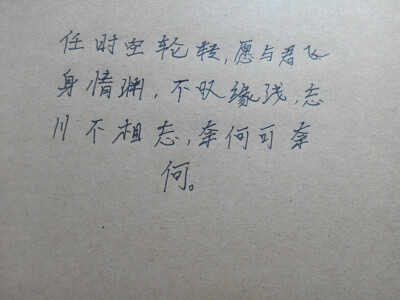 任时空轮转,愿与君飞
身情渊,不叹缘浅,忘
川不相忘,奈何可奈
何。